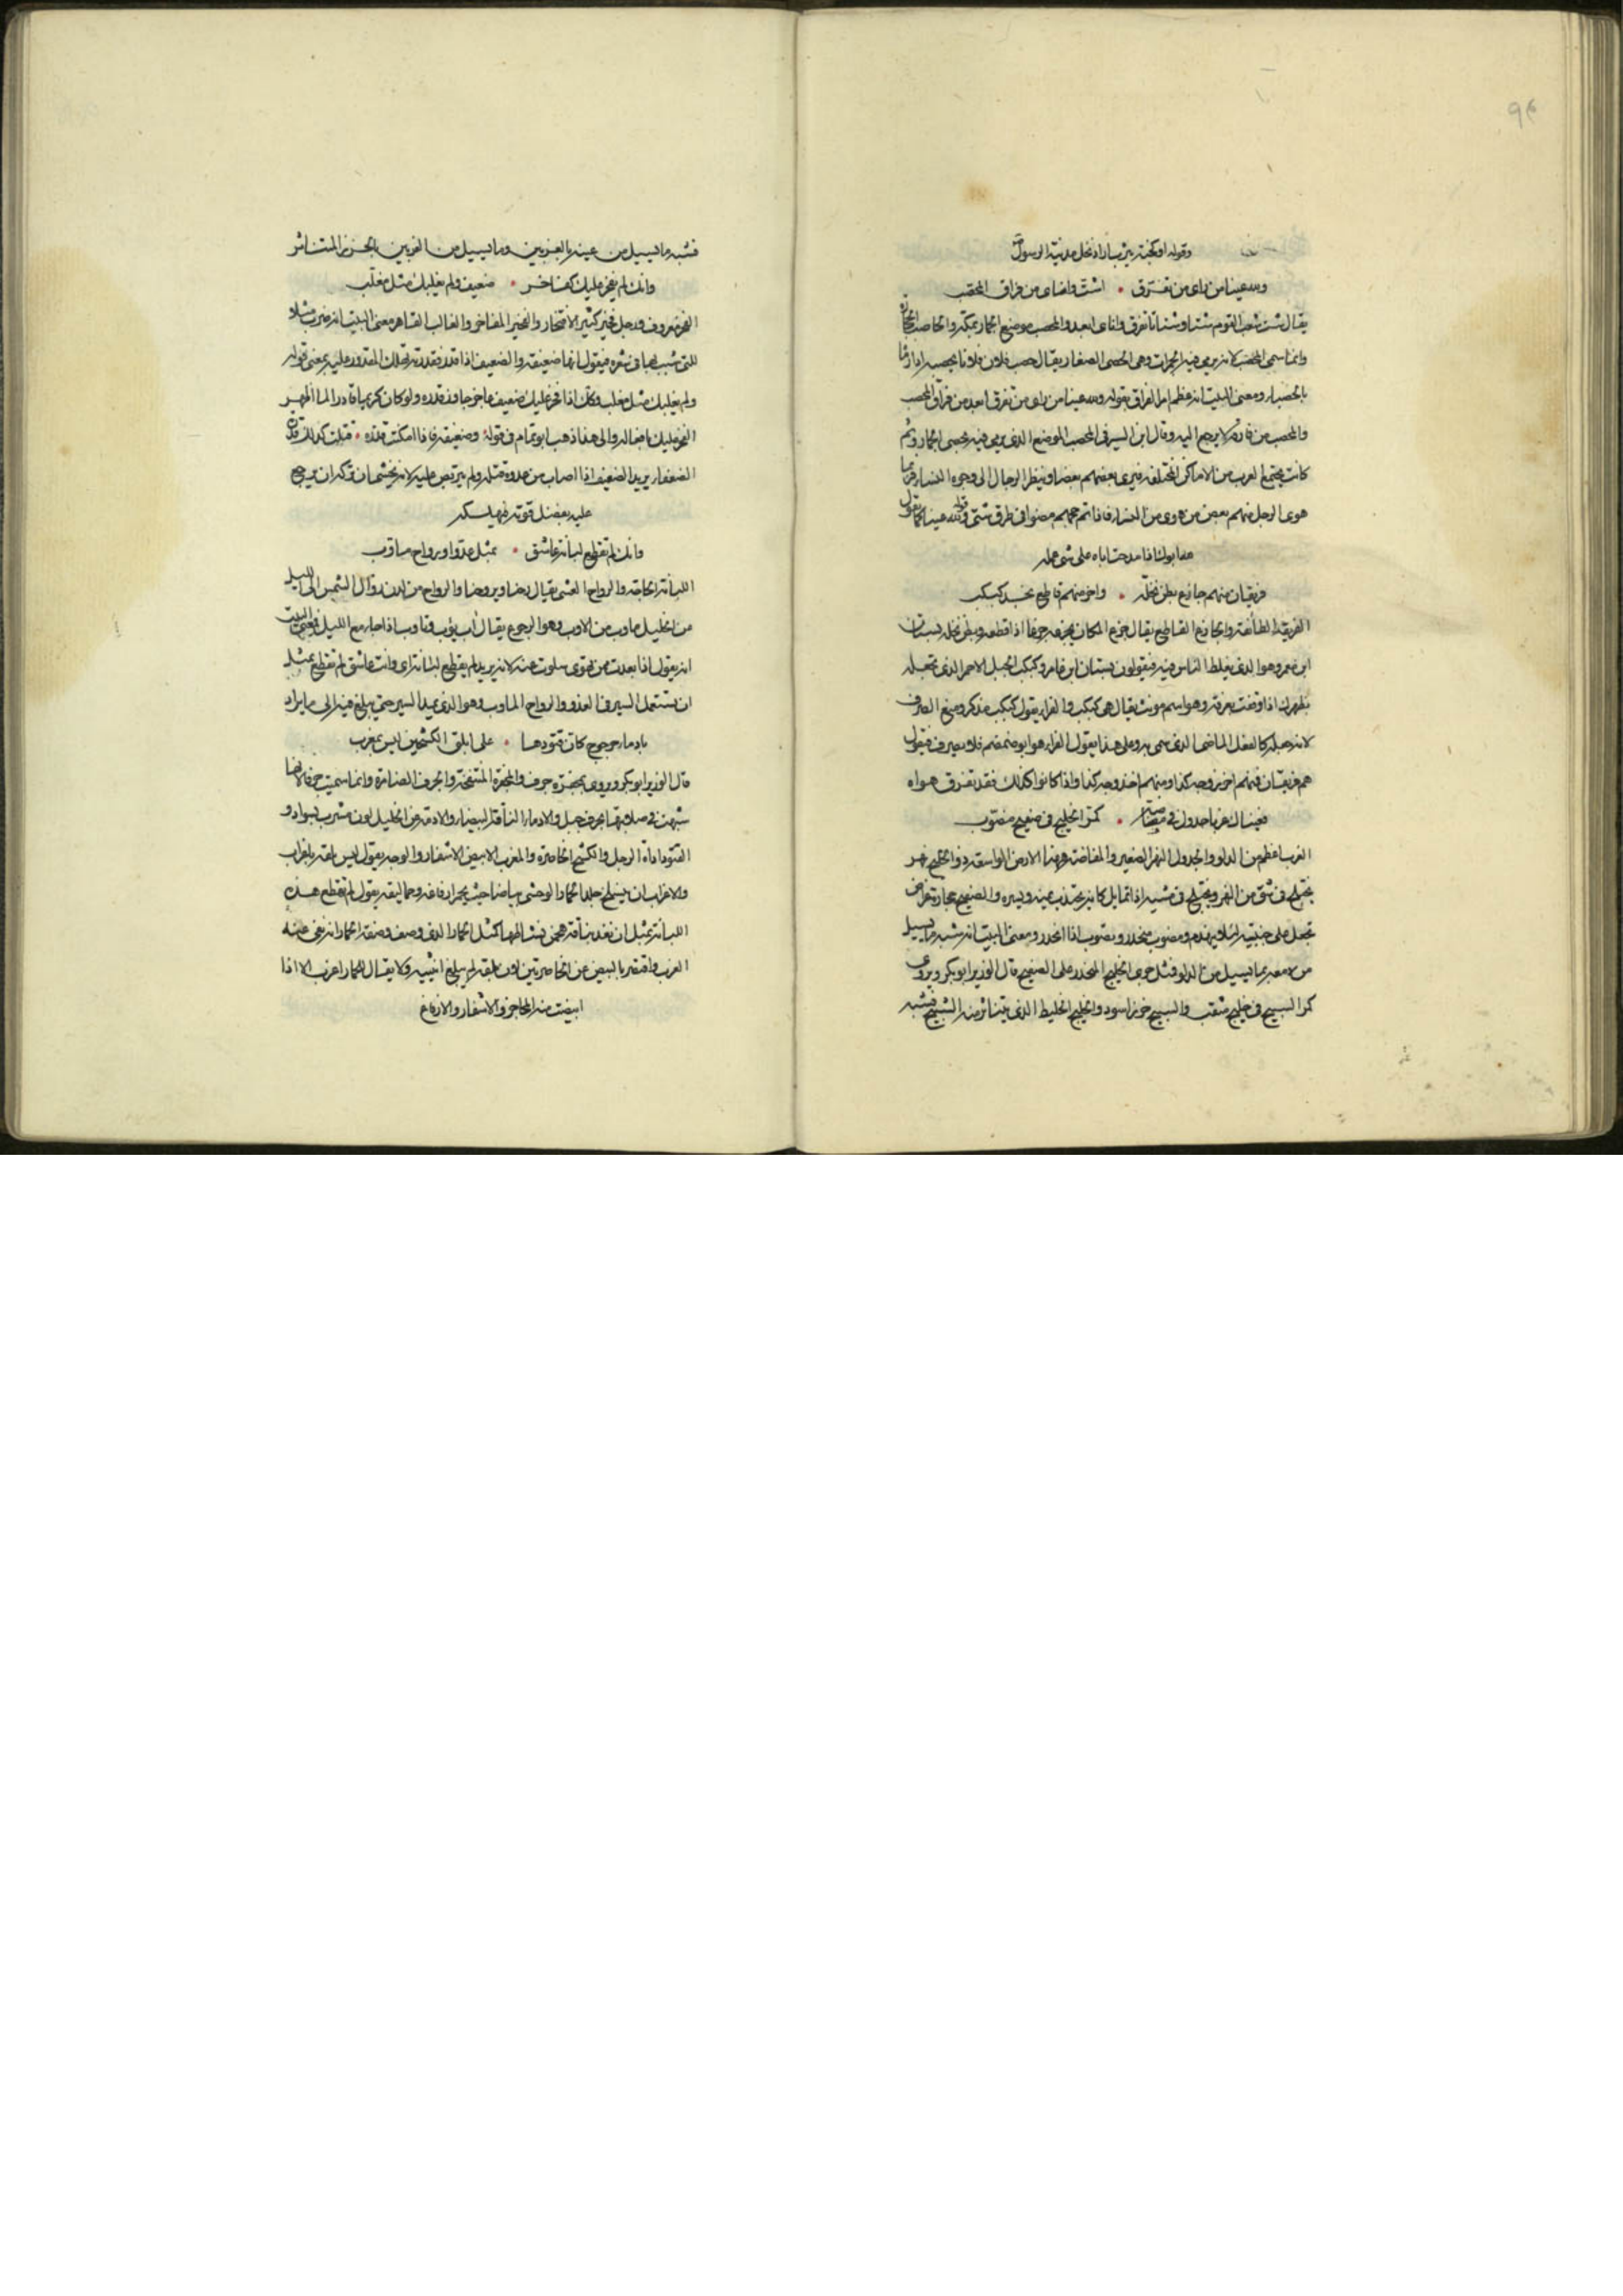 وقوله او كجنة يثرب اراد نخل مدينة الرسول
ولله عينا من راى من تفرق • اشت وانأى من فراق المحصب
يقال شت شعب القوم شتا وشتاتا تفرق وانأى ابعد والمحصب موضع الجمار بمكة والحاصب الحجارة
وانما سمى المحصب لانه يرمى فيه الجمرات وهى الحصى الصغار يقال حصب فلان فلانا يحصبه اذا رماه
بالحصباء ومعنى البيت انه عظم امر الفراق بقوله ولله عينا من راى من تفرق ابعد من فراق المحصب
والمحصب من فارقه لا يرجع اليه وقال ابن السيرفى المحصب الموضع الذى يرمى فيه بحصى الجمار وثم
كانت تجتمع العرب من الاماكن المختلفة فيرى بعضهم بعضا وينظر الرجال الى وجوه النساء فربما
هوى الرجل منهم بعض من هوى من النساء فاذا تم حجهم مضوا فى طرق شتى وقوله ولله عينا كما تقول
لله ابوك اذا مدحت اباه على شى عمله
فريقان منهم جازع بطن نخلة • واخر منهم قاطع نجد كبكب
الفريق الطائفة والجازع القاطع يقال جزع المكان يجزعه جزعا اذا قطعه وبطن نخلة بستان
ابن معمر وهو الذى يغلط الناس فيه فيقولون بستان ابن عامر وكبكب الجبل الاحمر الذى تجعله
بظهرك اذا وقفت بعرفة وهو اسم مونث يقال هى كبكب والفراء يقول كبكب مذكر ومنع الصرف
لانه جعله كالفعل الماضى الذى سمى به وعلى هذا يقول الفراء هو ابو ضمضم فلا يصرف فيقول
هم فريقان فمنهم اخذ وجه كذا ومنهم اخذ وجه كذا واذا كانوا كذلك فقد تفرق هواه
فعيناك غربا جدول فى مفاضة • كمر الخليج فى صفيح مصوب
الغرب اعظم من الدلو والجدول النهر الصغير والمفاضة ههنا الارض الواسعة والخليج نهر
يختلج فى شق من النهر ويختلج فى مشيه اذا تمايل كانه يجتذب يمينه ويسره والصفيح حجارة عراض
تجعل على جنبتيه لئلا يتهدم ومصوب منحدر وتصوب اذا انحدر ومعنى البيت انه شبه ما يسيل
من دمعه بما يسيل من الدلو فشل جرى الخليج المنحدر على الصفيح قال الوزير ابو بكر ويروى
كمر السبيح فى خليج مثقب والسبيح خرز اسود والخليج الخليط الذى يتناثر منه السبيح فشبه
فشبه ما يسيل من عينه بالغربين وما يسيل من الغربين بالخرز المتناثر
وانك لم يفخر عليك كفاخر • ضعيف ولم يغلبك مثل مغلب
الفخر معروف ورجل فخير كثير الافتخار والفخير المفاخر والغالب القاهر معنى البيت انه ضرب مثلا
للتى شبب بها فى شعره فيقول انها ضعيفة والضعيف اذا قدر فقدرته تهلك المقدور عليه بمعنى قوله
ولم يغلبك مثل مغلب وكان اذا فخر عليك ضعيف عاجز جاوز قدره ولو كان كريما قادرا لما اظهر
الفخر عليك بافعاله والى هذا ذهب ابو تمام فى قوله وضعيفة فاذا امكنت قدرة • قتلت كذلك قدرة
الضعفاء يريد الضعيف اذا اصاب من عدوه قتله ولم يتربص عليه لانه يخشى ان تركه ان يرجع
عليه بفضل قوته فيهلكه
وانك لم تقطع لبانة عاشق • بمثل غدو او رواح مأوب
اللبانة الحاجة والرواح العشى يقال رحنا ويروحنا والرواح من لدن زوال الشمس الى الليل
من الخليل مأوب من الاوب وهو الرجوع يقال آب يؤب وتأوب اذا جاء مع الليل فمعنى البيت
انه يقول اذا بعدت ممن تهوى سلوت عنه لانه يريد لم يقطع لبانته اى وانت عاشق لم تقطع بمثل
ان تستعمل السير فى الغدو والرواح المأوب وهو الذى يمد السير حتى يبلغ فيه الى ما يراد
بادماء حرجوج كان قتودها • على ابلق الكشحين ليس بمغرب
قال الوزير ابو بكر ويروى بمجفرة حرف والمجفرة المنتفخة والحرف الضامرة وانما سميت حرفا لانها
شبهت فى صلابتها بحرف جبل والادماء الناقة البيضاء والادمة عن الخليل لون مشرب بسواد و
القتود اداة الرحل والكشح الخاصرة والمغرب الابيض الاشفار والوجه يقول ليس بلقه باغراب
والاغراب ان يبيض جلد الحمار الوحشى بياضا حيث يحمر ارفاغه وحماليقه يقول لم تقطع هذه
اللبانة بمثل ان تغد بناقة همن نشاطها كمثل الحمار الذى وصف وصفة الحمار انه نفى عنه
الغرب واقتصر بالبيض عن الخاصرتين لان بلقه لم يبلغ انثييه ولا يقال للحمار اغرب الا اذا
ابيضت منه المحاجر والاشفار والارفاغ